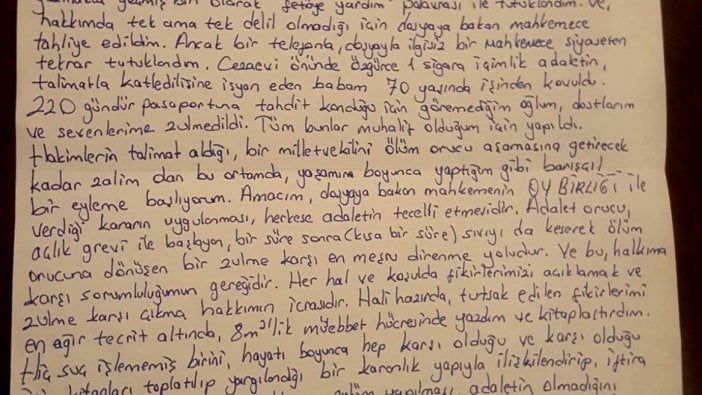 geçmiş biri olarak fetöye yardım palavrası ile tutuklandım. Ve,
hakkımda tek ama tek delil olmadığı için davaya bakan mahkemece
tahliye edildim. Ancak bir telefonla, davayla ilgisiz bir mahkemece siyaseten
tekrar tutuklandım. Cezaevi önünde özgürce 1 sigara içimlik adaletin,
talimatla katledilişine isyan eden babam 70 yaşında işinden kovuldu.
220 gündür pasaportuna tahdit konduğu için göremediğim oğlum, dostlarım
ve sevenlerime zulmedildi. Tüm bunlar muhalif olduğum için yapıldı.
Hakimlerin talimat aldığı, bir milletvekilini ölüm orucu aşamasına getirecek
kadar zalim olan bu ortamda, yaşamım boyunca yaptığım gibi barışçıl
bir eyleme başlıyorum. Amacım, davaya bakan mahkemenin OY BİRLİĞİ ile
verdiği kararın uygulanması, herkese adaletin tecelli etmesidir. Adalet orucu,
açlık grevi ile başlayan, bir süre sonra (kısa bir süre) sıvıyı da keserek ölüm
orucuna dönüşen bir zulme karşı en meşru direnme yoludur. Ve bu, halkıma
karşı sorumluluğumun gereğidir. Her hal ve koşulda fikirlerimizi açıklamak ve
zulme karşı çıkma hakkımın icrasıdır. Hali hazırda, tutsak edilen fikirlerimi
en ağır tecrit altında, 8m²'lik müebbet hücresinde yazdım ve kitaplaştırdım.
Hiç suç işlememiş birini, hayatı boyunca hep karşı olduğu ve karşı olduğu
bir karanlık yapıyla ilişkilendirip, iftira
kitapları toplatılıp yargılandığı
yapılması, adaletin olmadığını